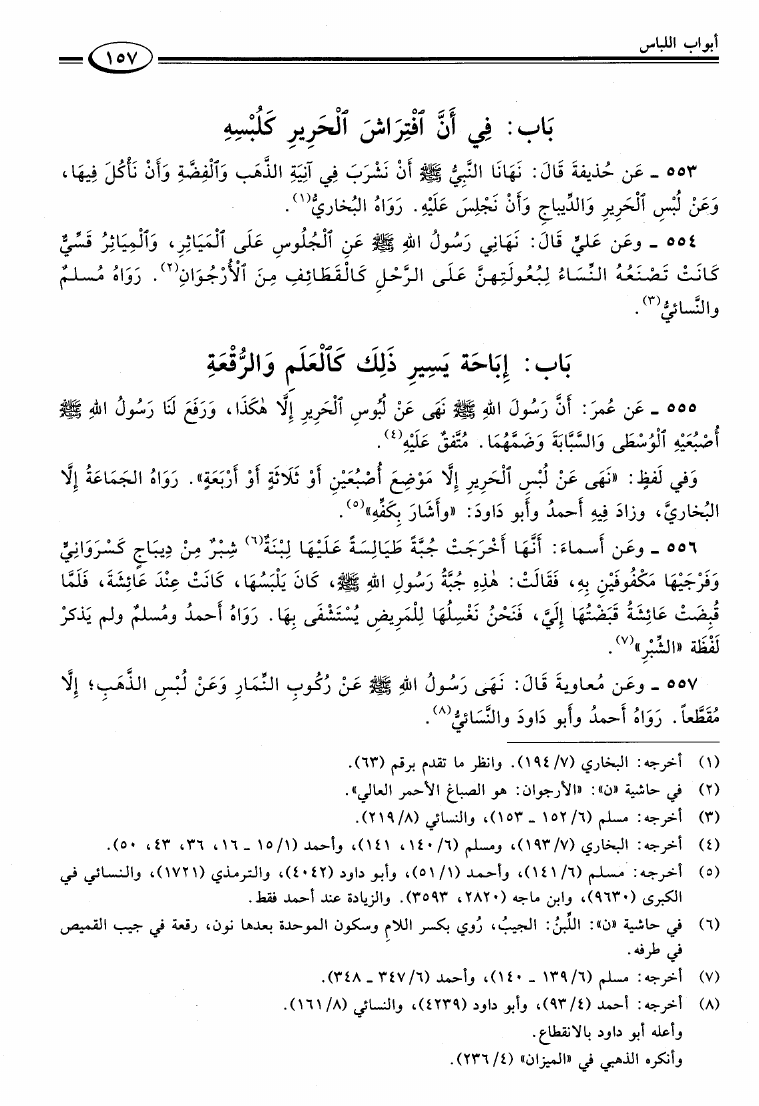 أبواب اللباس
١٥٧
بَاب: فِي أَنَّ ٱفْتِرَاشَ ٱلْحَرِيرِ كَلُبْسِهِ
٥٥٣ - عَن حُذيفةَ قَالَ: نَهَانَا النَّبِيُّ ﷺ أَنْ نَشْرَبَ فِي آنِيَةِ الذَّهَب وَٱلْفِضَّةِ وَأَنْ نَأْكُلَ فِيهَا،
وَعَنْ لُبْسِ ٱلْحَرِيرِ وَالدِّيباجِ وَأَنْ نَجْلِسَ عَلَيْهِ. رَوَاهُ البُخاريُّ(١).
٥٥٤ - وعَن عَليٍّ قَالَ: نَهَانِي رَسُولُ اللهِ ﷺ عَنِ ٱلْجُلُوسِ عَلَى ٱلْمَيَاثِرِ، وَٱلْمِيَاثِرُ قَسِّيٌّ
كَانَتْ تَصْنَعُهُ النِّسَاءُ لِبُعُولَتِهِنَّ عَلَى الرَّحْلِ كَٱلْقَطَائِفِ مِنَ ٱلْأُرْجُوَانِ(٢). رَوَاهُ مُسلمٌ
والنَّسائيُّ(٣).
بَاب: إِبَاحَة يَسِيرِ ذَلِكَ كَٱلْعَلَمِ وَالرُّقْعَةِ
٥٥٥ - عَن عُمرَ: أَنَّ رَسُولَ اللهِ ﷺ نَهَى عَنْ لُبُوسِ ٱلْحَرِيرِ إِلَّا هٰكَذَا، وَرَفَعَ لَنَا رَسُولُ اللهِ ﷺ
أُصْبُعَيْهِ ٱلْوُسْطَى وَالسَّبَّابَةَ وَضَمَّهُمَا. مُتَّفقٌ عَلَيْهِ(٤).
وَفي لَفظٍ: «نَهَى عَنْ لُبْسِ ٱلْحَرِيرِ إِلَّا مَوْضِعَ أُصْبُعَيْنِ أَوْ ثَلَاثَةٍ أَوْ أَرْبَعَةٍ». رَوَاهُ الجَماعَةُ إِلَّا
البُخاريَّ، وزادَ فِيهِ أَحمدُ وأَبو دَاودَ: «وأَشَارَ بِكَفِّهِ»(٥).
٥٥٦ - وعَن أَسماءَ: أَنَّهَا أَخْرَجَتْ جُبَّةً طَيَالِسَةً عَلَيْهَا لِبْنَةُ(٦) شِبْرٍ مِنْ دِيبَاجٍ كَسْرَوَانِيٍّ
وَفَرْجَيْهَا مَكْفُوفَيْنِ بِهِ، فَقَالَتْ: هٰذِهِ جُبَّةُ رَسُولِ اللهِ ﷺ، كَانَ يَلْبَسُهَا، كَانَتْ عِنْدَ عَائِشَةَ، فَلَمَّا
قُبِضَتْ عَائِشَةُ قَبَضْتُهَا إِلَيَّ، فَنَحْنُ نَغْسِلُهَا لِلْمَرِيضِ يُسْتَشْفَى بِهَا. رَوَاهُ أَحمدُ ومُسلمٌ ولم يَذكرْ
لَفْظَة «الشِّبْرِ»(٧).
٥٥٧ - وعَن مُعاويةَ قَالَ: نَهَى رَسُولُ اللهِ ﷺ عَنْ رُكُوبِ النِّمَارِ وَعَنْ لُبْسِ الذَّهَبِ؛ إِلَّا
مُقَطَّعاً. رَوَاهُ أَحمدُ وأَبو دَاودَ والنَّسَائيُّ(٨).
(١) أخرجه: البخاري (٧/ ١٩٤). وانظر ما تقدم برقم (٦٣).
(٢) في حاشية «ن»: «الأرجوان: هو الصباغ الأحمر العالي».
(٣) أخرجه: مسلم (٦/ ١٥٢ - ١٥٣)، والنسائي (٨/ ٢١٩).
(٤) أخرجه: البخاري (٧/ ١٩٣)، ومسلم (٦/ ١٤٠، ١٤١)، وأحمد (١/ ١٥ - ١٦، ٣٦، ٤٣، ٥٠).
(٥) أخرجه: مسلم (٦/ ١٤١)، وأحمد (١/ ٥١)، وأبو داود (٤٠٤٢)، والترمذي (١٧٢١)، والنسائي في
الكبرى (٩٦٣٠)، وابن ماجه (٢٨٢٠، ٣٥٩٣). والزيادة عند أحمد فقط.
(٦) في حاشية «ن»: اللِّبنُ: الجيبُ، رُوي بكسر اللام وسكون الموحدة بعدها نون، رقعة في جيب القميص
في طرفه.
(٧) أخرجه: مسلم (٦/ ١٣٩ - ١٤٠)، وأحمد (٦/ ٣٤٧ - ٣٤٨).
(٨) أخرجه: أحمد (٤/ ٩٣)، وأبو داود (٤٢٣٩)، والنسائي (٨/ ١٦١).
وأعله أبو داود بالانقطاع.
وأنكره الذهبي في «الميزان» (٤/ ٢٣٦).